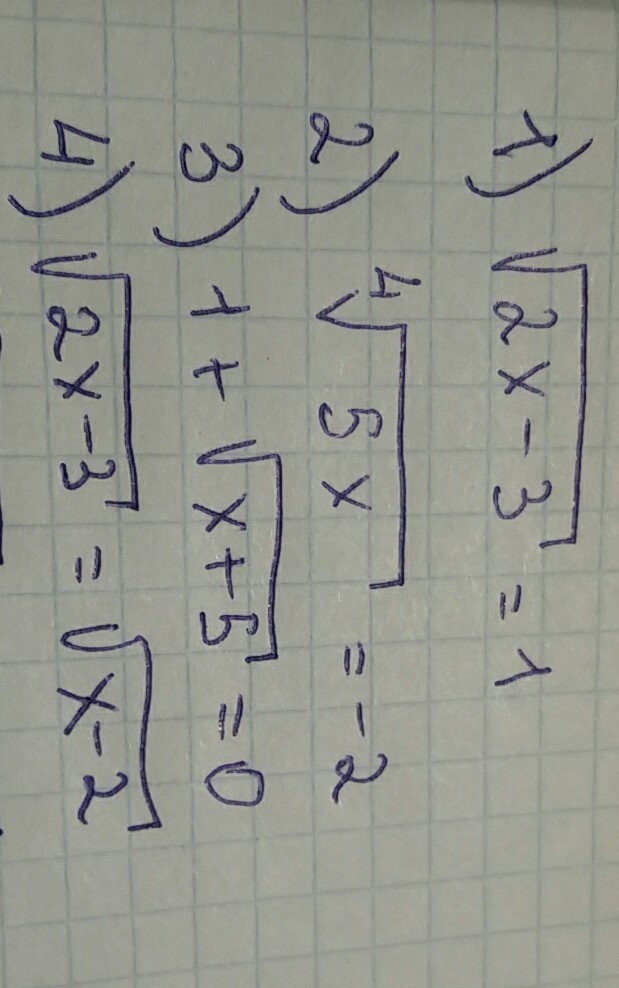 1) √2x-3 = 1
2) ⁴√5x = -2
3) 1 + √x+5 = 0
4) √2x-3 = √x-2